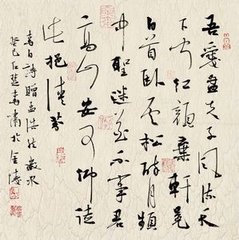 吾愛孟夫子風流天
下聞紅顏棄軒冕
白首臥雲松醉月頻
中聖迷花不事君
高山安可仰徒
此挹清芬
李白詩贈孟浩然歲次
癸巳 於金陵